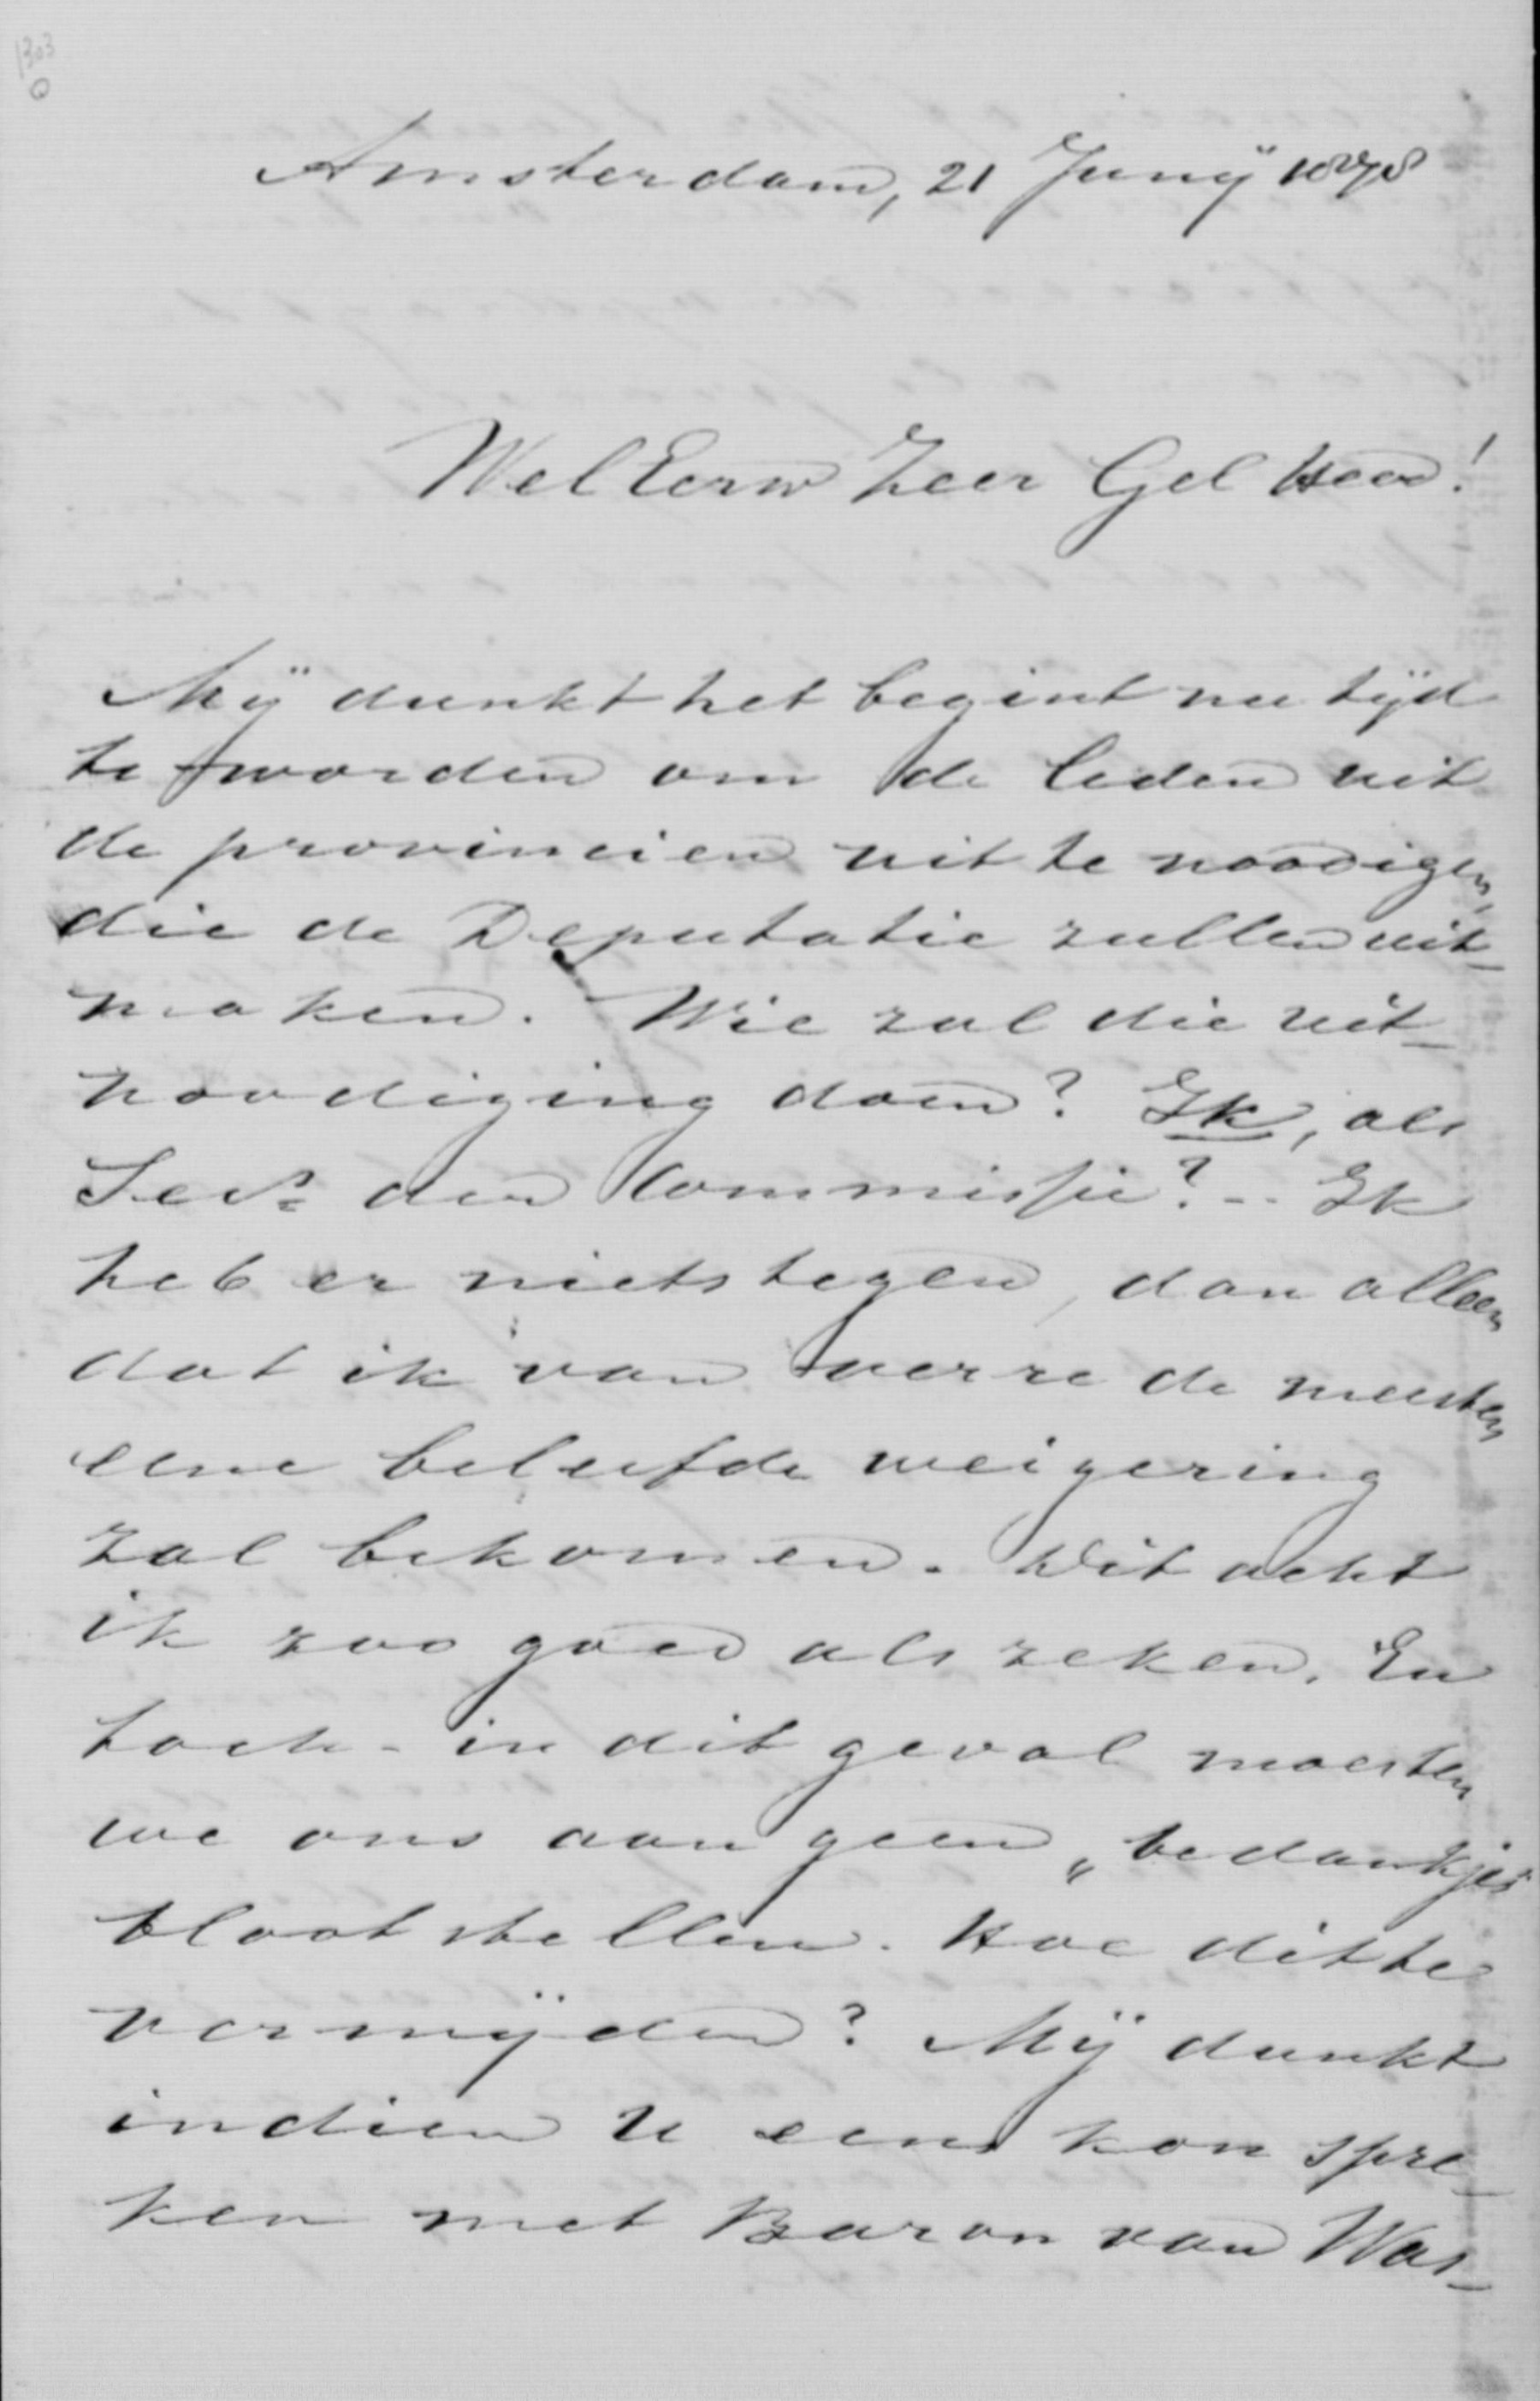 1303
Amsterdam, 21 Junÿ 1878
Wel Eerw Zeer Gel Heer!
Mÿ dunkt het begint nu tÿd
te worden om de leden uit
de provincien uit te noodigen,
die de Deputatie zullen uit-
maken. Wie zal die uit-
noodiging doen? Ik, als
Secr. der Commissie? -- Ik
heb er niets tegen, dan alleen
dat ik van verre de meesten
eene beleefde weigering
zal bekomen. Dit acht
ik zoo goed als zeker. En
toch - in dit geval moesten
we ons aan geen „bedankjes"
blootstellen. Hoe dit te
vermÿden? Mÿ dunkt
indien U eens kon spre-
ken met Baron van Was-